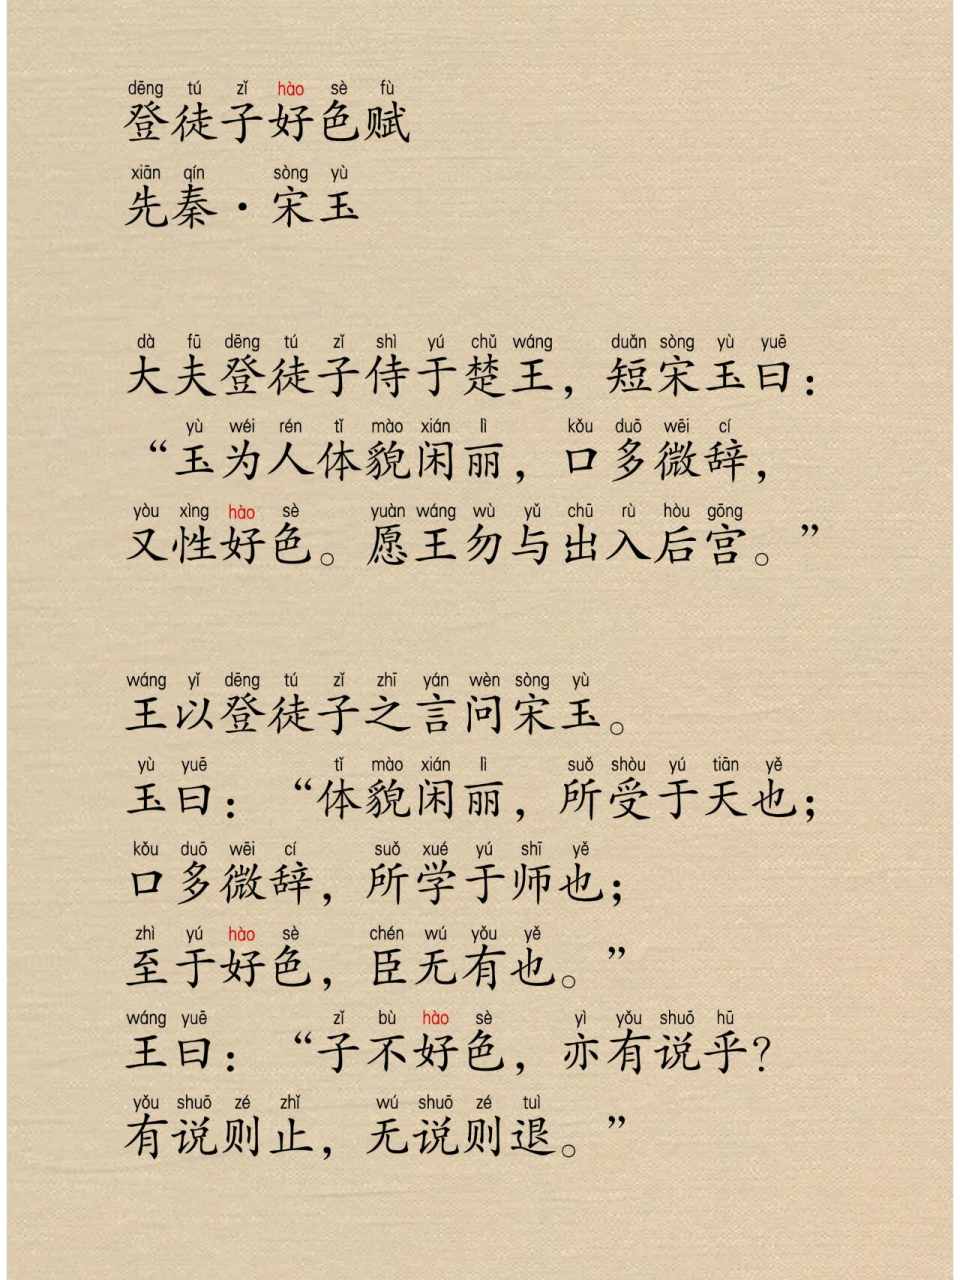 dēng tú zǐ hào sè fù
登徒子好色赋
xiān qín sòng yù
先秦·宋玉
dà fū dēng tú zǐ shì yú chǔ wáng duǎn sòng yù yuē
大夫登徒子侍于楚王，短宋玉曰：
yù wéi rén tǐ mào xián lì kǒu duō wēi cí
“玉为人体貌闲丽，口多微辞，
yòu xìng hào sè yuàn wáng wù yǔ chū rù hòu gōng
又性好色。愿王勿与出入后宫。”
wáng yǐ dēng tú zǐ zhī yán wèn sòng yù
王以登徒子之言问宋玉。
yù yuē tǐ mào xián lì suǒ shòu yú tiān yě
玉曰：“体貌闲丽，所受于天也；
kǒu duō wēi cí suǒ xué yú shī yě
口多微辞，所学于师也；
zhì yú hào sè chén wú yǒu yě
至于好色，臣无有也。”
wáng yuē zǐ bù hào sè yì yǒu shuō hū
王曰：“子不好色，亦有说乎？
yǒu shuō zé zhǐ wú shuō zé tuì
有说则止，无说则退。”